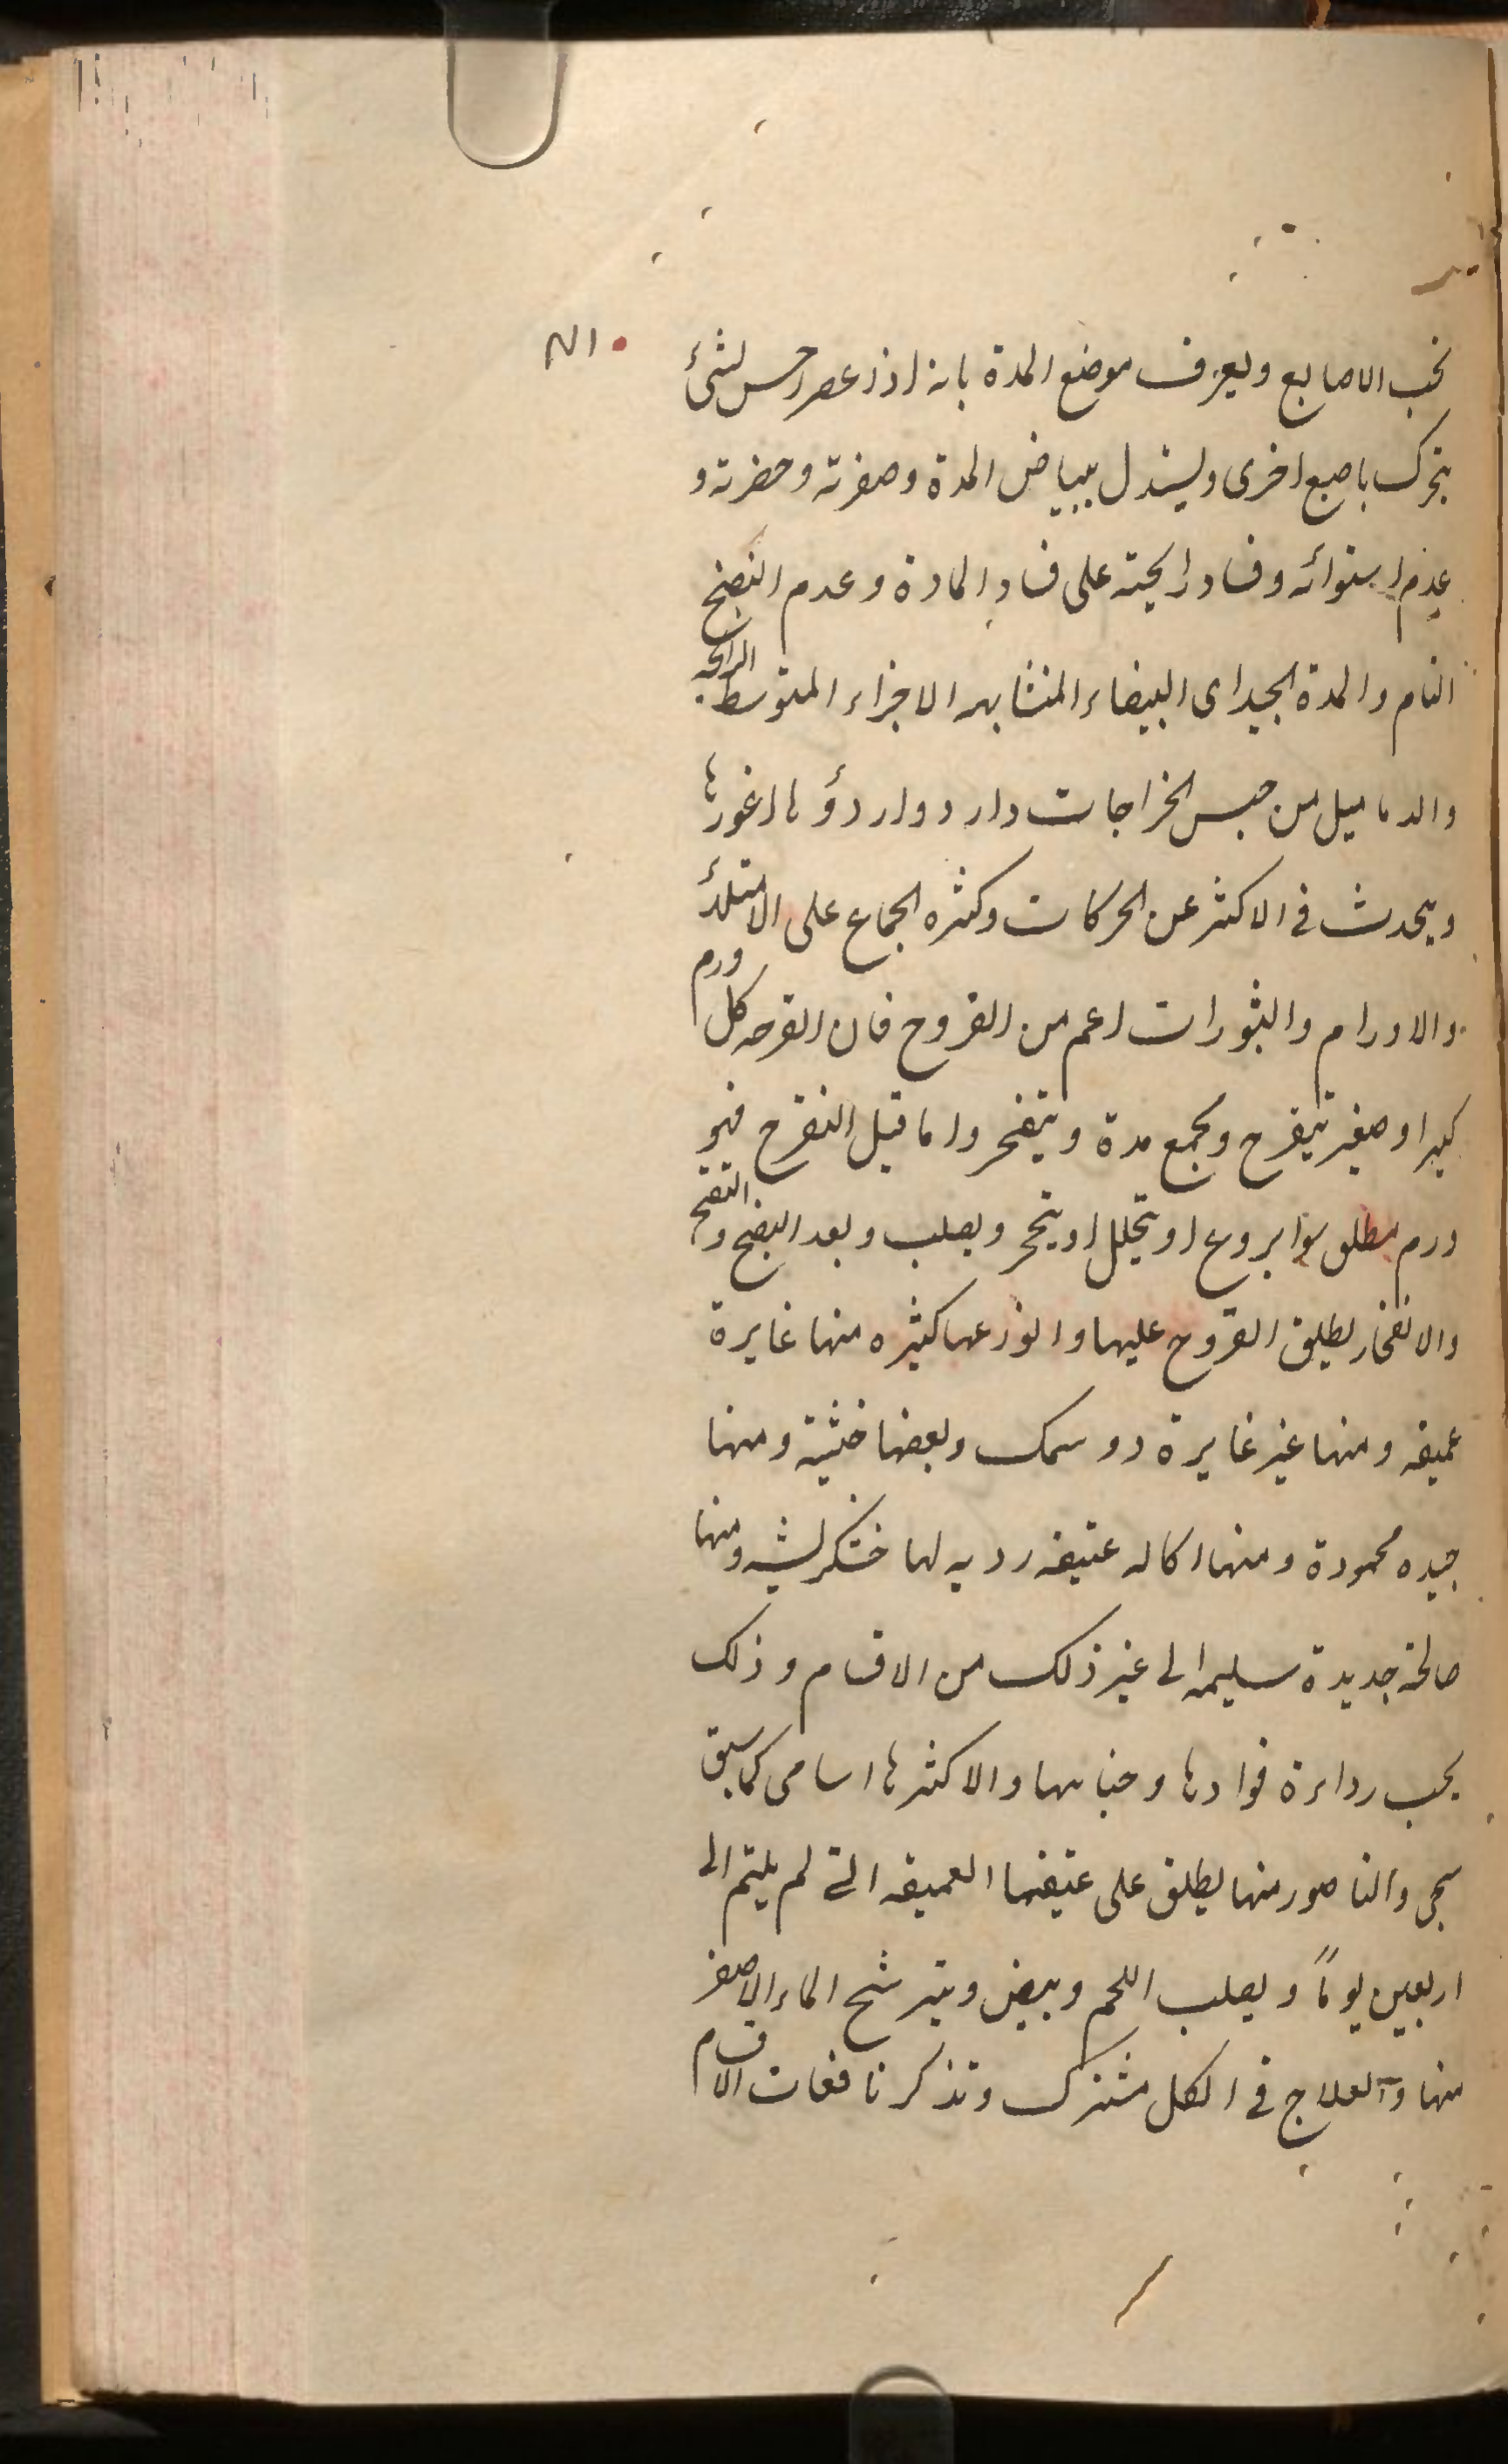 تحت الاصابع ويعرف موضع المدة بانه اذا عصر احس لشئ
يتحرك باصبع اخرى ويستدل ببياض المدة وصفرته وخضرته و
عدم استوائه وفساد رايحته على فساد المادة وعدم النضج
التام والمدة الجيد اى البيضاء المتشابهه الاجزاء المتوسط الرائحه
والدماميل من جنس الخراجات دارد واردؤها اغورها
ويحدث فى الاكثر عن الحركات وكثره الجماع على الامتلائ
والاورام والبثورات اعم من القروح فان القرحه كل ورم
كبير او صغير يتقرح ويجمع مدة ويتفجر واما قبل التقرح فهو
ورم مطلق او يتحلل او يتحجر ويصلب وبعد النضج و التقيح
والانفجار يطلق القروح عليها وانواعها كثيره منها غايرة
عميقه ومنها غير غايرة ذو سمك وبعضها خبيثة ومنها
جيده محمودة ومنها اكاله عتيقه رديه لها خشكريشه ومنها
صالحة جديدة سليمه الى غير ذلك من الاقسام وذلك
بحسب رداءة موادها وخباثتها والاكثرها اسامى كما سبق
والناصور منها يطلق على عتيقها العميقه التى لم يلتم الى
اربعين يوماً ويصلب اللحم وبيض ويترشح الماء الاصفر
منها والعلاج فى الكل مشترك وتذكر نافعات الاقسام